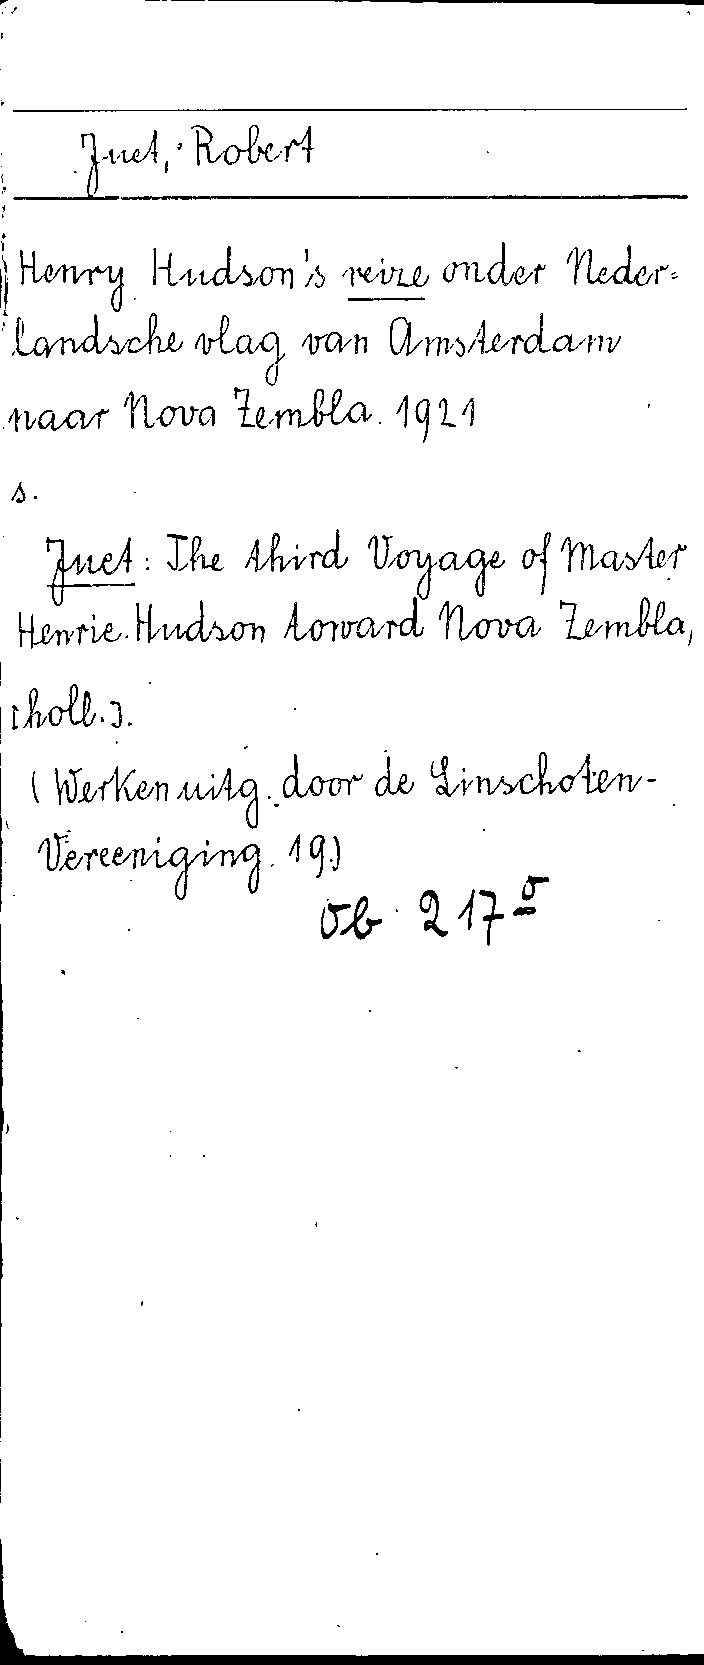 Juet, Robert
Henry Hudson's reize onder Neder-
landsche vlag van Amsterdam
naar Nova Zembla. 1921
s.
Juet: The third Voyage of Master
Henrie Hudson toward Nova Zembla,
[holl.].
(Werken uitg. door de Linschoten-
Vereeniging. 19.)
Ob 217